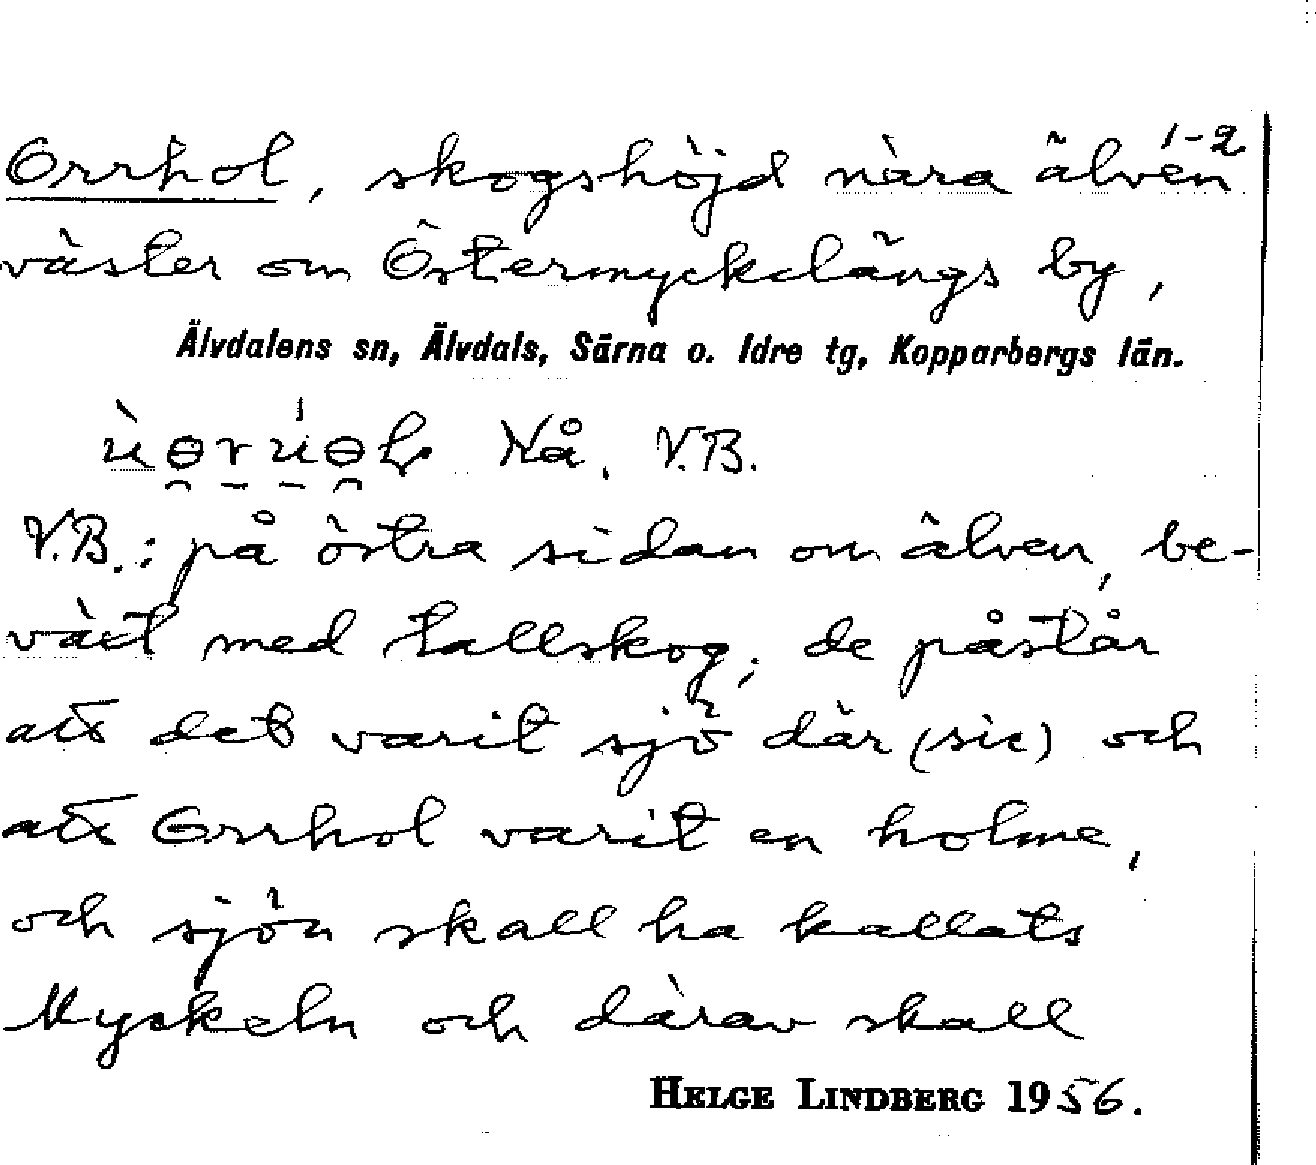 1-2
Orrhol, skogshöjd nära älven
väster om Östermyckelängs by,
Älvdalens sn, Älvdals, Särna o. Idre tg, Kopparbergs län.
Nå. V.B.
V.B.: på östra sidan om älven, be-
växt med tallskog; de påstår
att det varit sjö där (sic) och
att Orrhol varit en holme,
och sjön skall ha kallats
Myckeln och därav skall
HELGE LINDBERG 1956.